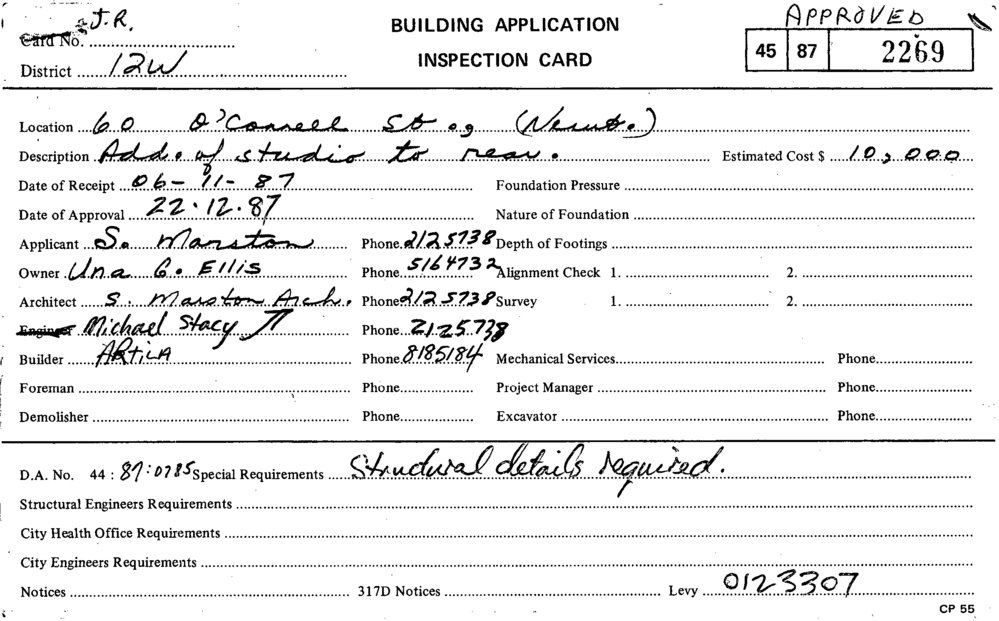 J.R. BUILDING APPLICATION APPROVED
Card No. INSPECTION CARD 45 87 2269
District 12W
Location 60 O'Connell St
Description Add. of studio to rear. Estimated Cost $ 10,000
Date of Receipt 06-11-87 Foundation Pressure
Date of Approval 22.12.87 Nature of Foundation
Applicant S. Marston Phone 2125738 Depth of Footings
Owner Una G. Ellis Phone 5164732 Alignment Check 1. 2.
Architect S. Marston Arch. Phone 2125738 Survey 1. 2.
Engineer Michael Stacy Phone 2125738
Builder ARTICA Phone 8185184 Mechanical Services Phone
Foreman Phone Project Manager Phone
Demolisher Phone Excavator Phone
D.A. No. 44 : 87:0785 Special Requirements Structural details required.
Structural Engineers Requirements
City Health Office Requirements
City Engineers Requirements
Notices 317D Notices Levy 0123307
CP 55